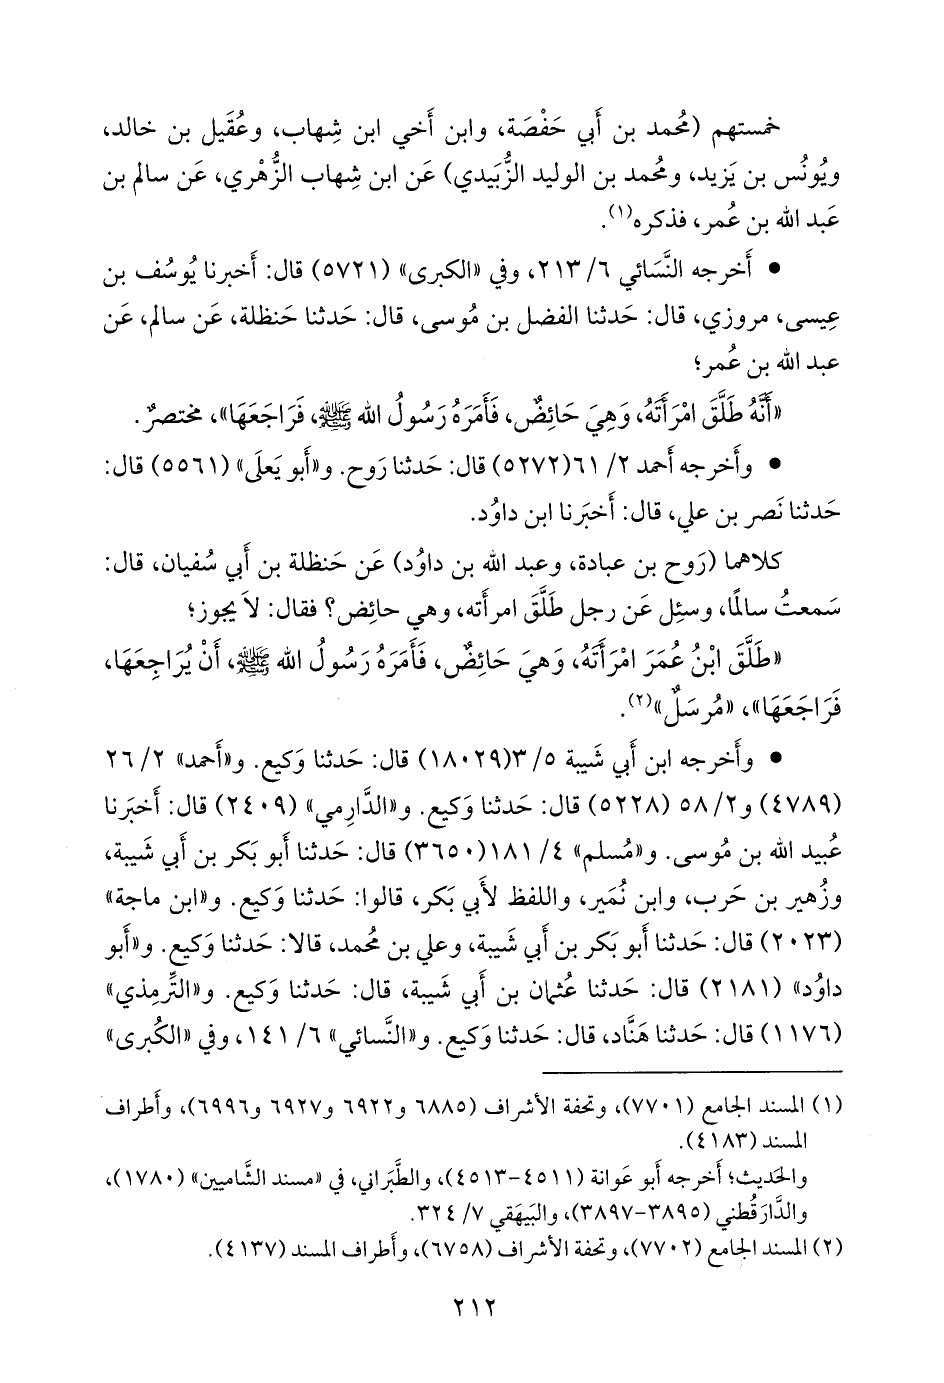 خمستهم (مُحمد بن أَبي حَفْصَة، وابن أَخي ابن شِهاب، وعُقَيل بن خالد،
ويُونُس بن يَزيد، ومُحمد بن الوليد الزُّبَيدي) عَن ابن شِهاب الزُّهْري، عَن سالم بن
عَبد الله بن عُمر، فذكره(١).
• أَخرجه النَّسَائي ٦/ ٢١٣، وفي «الكبرى» (٥٧٢١) قال: أَخبرنا يُوسُف بن
عِيسى، مروزي، قال: حَدثنا الفضل بن مُوسى، قال: حَدثنا حَنظلة، عَن سالم، عَن
عبد الله بن عُمر؛
«أَنَّهُ طَلَّقَ امْرَأَتَهُ، وَهِيَ حَائِضٌ، فَأَمَرَهُ رَسُولُ الله ﷺ، فَرَاجَعَهَا»، مختصرٌ.
• وأَخرجه أَحمد ٢/ ٦١(٥٢٧٢) قال: حَدثنا رَوح. و«أَبو يَعلَى» (٥٥٦١) قال:
حَدثنا نَصر بن علي، قال: أَخبَرنا ابن داوُد.
كلاهما (رَوح بن عبادة، وعبد الله بن داوُد) عَن حَنظلة بن أَبي سُفيان، قال:
سَمعتُ سالمًا، وسئِل عَن رجل طَلَّقَ امرأَته، وهي حائِض؟ فقال: لاَ يجوز؛
«طَلَّقَ ابْنُ عُمَرَ امْرَأَتَهُ، وَهِيَ حَائِضٌ، فَأَمَرَهُ رَسُولُ الله ﷺ، أَنْ يُرَاجِعَهَا،
فَرَاجَعَهَا»، «مُرسَلٌ»(٢).
• وأَخرجه ابن أَبي شَيبة ٥/ ٣(١٨٠٢٩) قال: حَدثنا وَكيع. و«أَحمد» ٢/ ٢٦
(٤٧٨٩) و٢/ ٥٨ (٥٢٢٨) قال: حَدثنا وَكيع. و«الدَّارِمي» (٢٤٠٩) قال: أَخبَرنا
عُبيد الله بن مُوسى. و«مُسلم» ٤/ ١٨١(٣٦٥٠) قال: حَدثنا أَبو بَكر بن أَبي شَيبة،
وزُهير بن حَرب، وابن نُمَير، واللفظ لأَبي بَكر، قالوا: حَدثنا وَكيع. و«ابن ماجة»
(٢٠٢٣) قال: حَدثنا أَبو بَكر بن أَبي شَيبة، وعلي بن مُحمد، قالا: حَدثنا وَكيع. و«أَبو
داوُد» (٢١٨١) قال: حَدثنا عُثمان بن أَبي شَيبة، قال: حَدثنا وَكيع. و«التِّرمِذي»
(١١٧٦) قال: حَدثنا هَنَّاد، قال: حَدثنا وَكيع. و«النَّسائي» ٦/ ١٤١، وفي «الكُبرى»
(١) المسند الجامع (٧٧٠١)، وتحفة الأشراف (٦٨٨٥ و٦٩٢٢ و٦٩٢٧ و٦٩٩٦)، وأَطراف
المسند (٤١٨٣).
والحَديث؛ أَخرجه أَبو عَوانة (٤٥١١-٤٥١٣)، والطَّبَراني، في «مسند الشَّاميين» (١٧٨٠)،
والدَّارَقُطني (٣٨٩٥-٣٨٩٧)، والبَيهَقي ٧/ ٣٢٤.
(٢) المسند الجامع (٧٧٠٢)، وتحفة الأشراف (٦٧٥٨)، وأَطراف المسند (٤١٣٧).
٢١٢